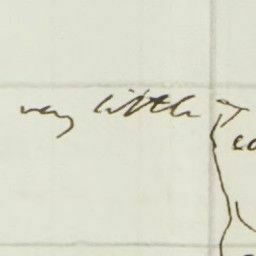 very little